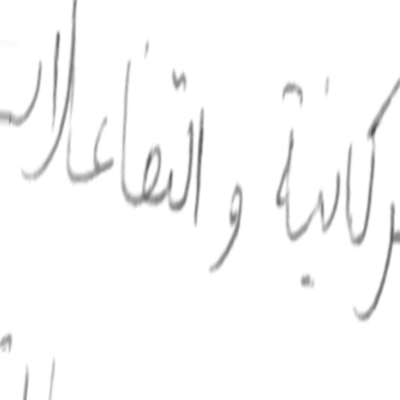 ركانية والتفاعلات